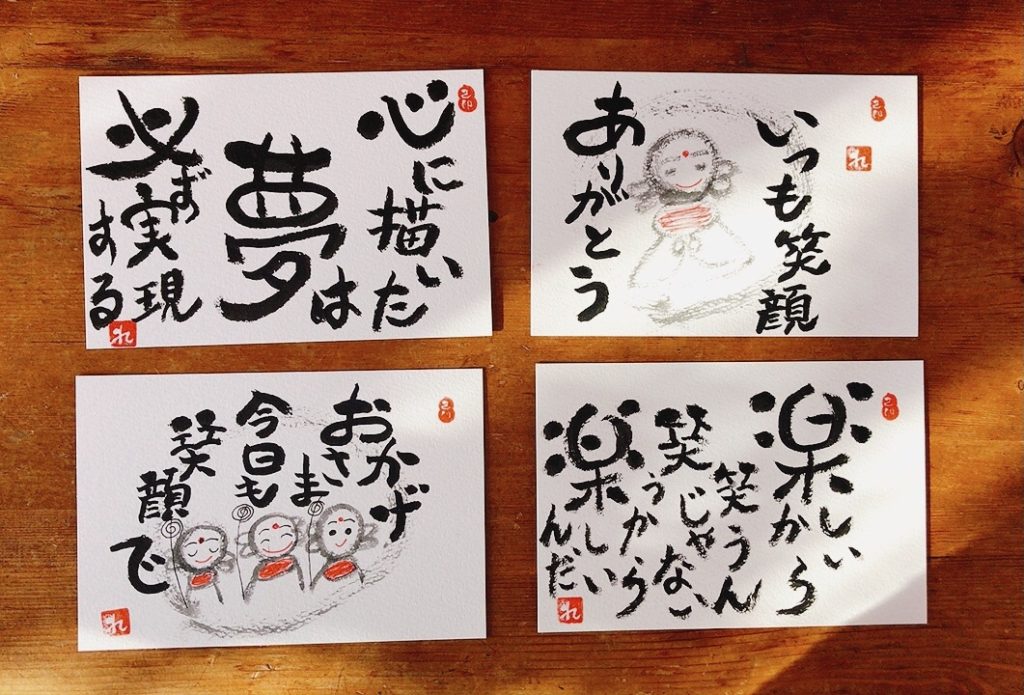 心に描いた
夢は
必ず実現
する
れ
いつも笑顔
ありがとう
れ
おかげ
さま
今日も
笑顔
で
れ
楽しいから
笑うん
じゃない
笑うから
楽しい
んだ
れ